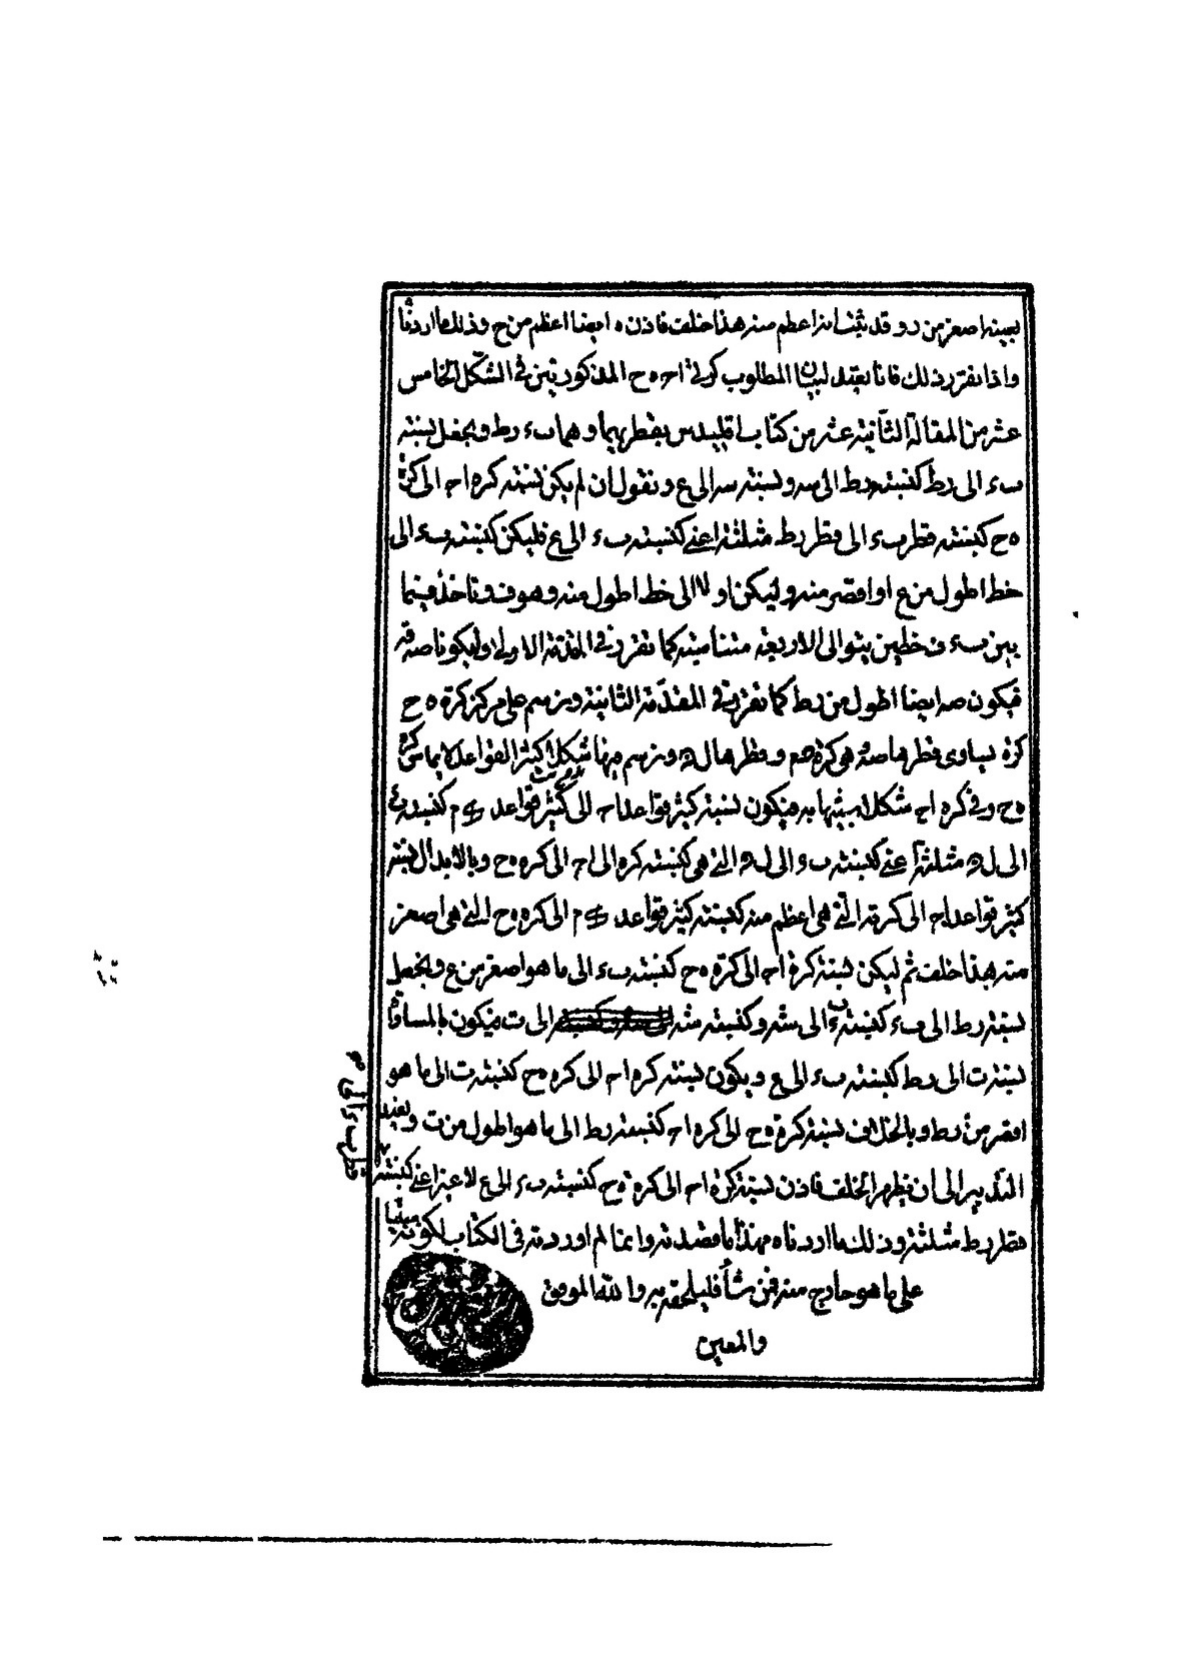 بعينه اصغر من د وقد ثبت انه اعظم منه هذا خلف فاذن ه ايضا اعظم من ح وذلك ما اردنا
واذا تقرر ذلك فانا نعيد لبيان المطلوب كرتي ا ح ه ح المذكورتين في الشكل الخامس
عشر من المقالة الثانية عشر من كتاب اقليدس بقطريهما وهما ب ء ر ط ونجعل نسبة
ب ء الى ر ط كنسبة ر ط الى سه ونسبة سه الى ع ونقول ان لم يكن نسبة كره ا ح الى كرة
ه ح كنسبة قطر ب ء الى قطر ر ط مثلثة اعني كنسبة ب ء الى ع فليكن كنسبة ب ء الى
خط اطول من ع او اقصر منه وليكن اولا الى خط اطول منه وهو ف وناخذ فيما
بين ب ء ف خطين يتوالى الاربعة متناسبة كما تقرر في المقدمة الاولى وليكونا صه ق
فيكون صه ايضا اطول من ر ط كما تقرر في المقدمة الثانية ونرسم على مركز كرة ه ح
كرة يساوي قطرها صه وهي كرة م وقطرها ل ونرسم فيها شكلا كثير القواعد لا يماس كرة
ه ح وفي كره ا ح شكلا شبيها به فيكون نسبة كثير قواعد ا ح الى كثير قواعد م كنسبة ب ء
الى ل مثلثة اعني كنسبة ب ء الى ل التي هي كنسبة كره الى ا ح الى كره ه ح وبالابدال نسبة
كثير قواعد ا ح الى كرته التي هي اعظم منه كنسبة كثير قواعد م الى كره ه ح التي هي اصغر
منه هذا خلف ثم ليكن نسبة كرة ا ح الى كرة ه ح كنسبة ب ء الى ما هو اصغر من ع ونجعل
نسبة ر ط الى ب ء كنسبة ب ء الى شه وكنسبة شه الى ت فيكون بالمساواة
نسبة ت الى ر ط كنسبة ب ء الى ع ويكون نسبة كره ا ح الى كره ه ح كنسبة ت الى ما هو
اقصر من ر ط وبالخلاف نسبة كرة ه ح الى كره ا ح كنسبة ر ط الى ما هو اطول من ت ونعيد
التدبير الى ان يظهر الخلف فاذن نسبة كرة ا ح الى كرة ه ح كنسبة ب ء الى ع لا غير اعني كنسبة
قطر ب ء الى
قطر ر ط مثلثة وذلك ما اردناه فهذا ما قصدته وانما لم اورده في الكتاب لكونه مبنيا
على ما هو خارج منه فمن شاء فليلحقه به والله الموفق
والمعين